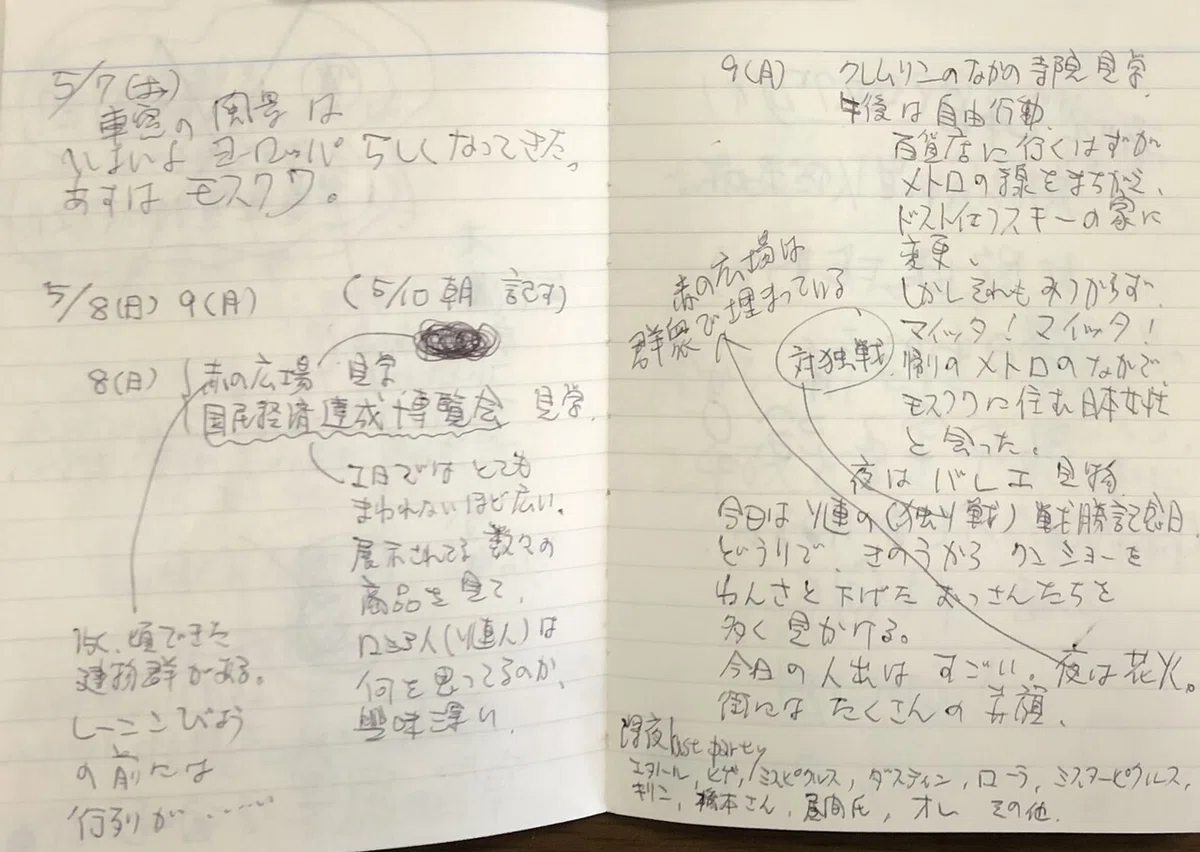 5/7(土)
車窓の風景は
いよいよヨーロッパらしくなってきた。
あすはモスクワ。
5/8(日) 9(月) (5/10朝 記す)
8(日) 赤の広場 見学
国民経済達成博覧会 見学.
1日ではとても
まわれないほど広い.
展示されてる数々の
商品を見て,
ロシア人(ソ連人)は
何を思ってるのか、
興味深い.
15c.頃できた
建物群がある。
レーニンびょう
の前には
行列が……
9(月) クレムリンのなかの寺院見学.
午後は自由行動.
百貨店に行くはずが
メトロの線をまちがえ、
ドストエフスキーの家に
変更、
しかしそれもみつからず.
マイッタ!マイッタ!
帰りのメトロのなかで、
モスクワに住む日本女性
と会った.
夜はバレエ見物.
今日はソ連の(独ソ戦)戦勝記念日
というりで、きのうから クンショーを
わんさと下げたおっさんたちを
多く見かける。
今日の人出はすごい。夜は花火。
街にはたくさんの笑顔.
赤の広場は
群衆で埋まっている
対独戦
深夜last party
エタノール, ヒゲ, ミスピクルス, ダスティン, ローラ, ミスターピクルス,
キリン, 橋本さん, 昼間氏, オレ その他.